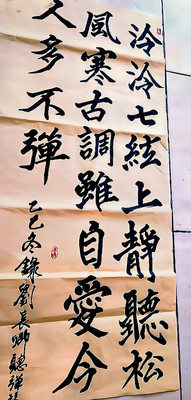 泠泠七絃上靜聽松
風寒古調雖自愛今
人多不彈
乙巳冬錄劉長卿聽彈琴